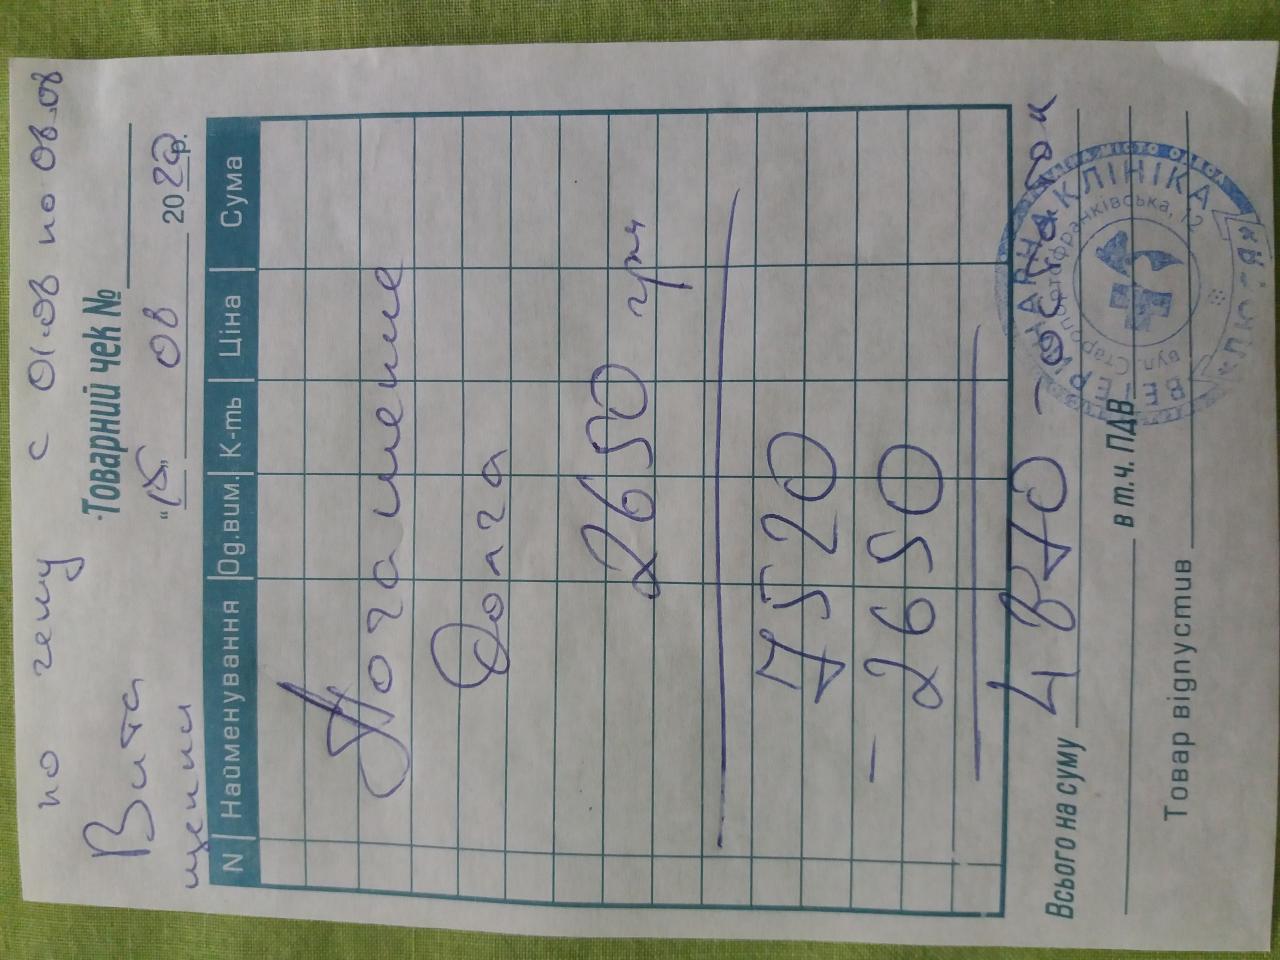 по чему с 01.08 по 08.08
Вита
щенки
Товарний чек №
"15" 08 20 р.
N Найменування Од.вим. К-ть Ціна Сума
Погашение
Долга
2650 грн
7520
- 2650
Всього на суму 4870 - остаток
в т.ч. ПДВ
Товар відпустив
ВЕТЕРИНАРНА КЛІНІКА
вул. Старопортофранківська, 12
МІСТО ОДЕСА